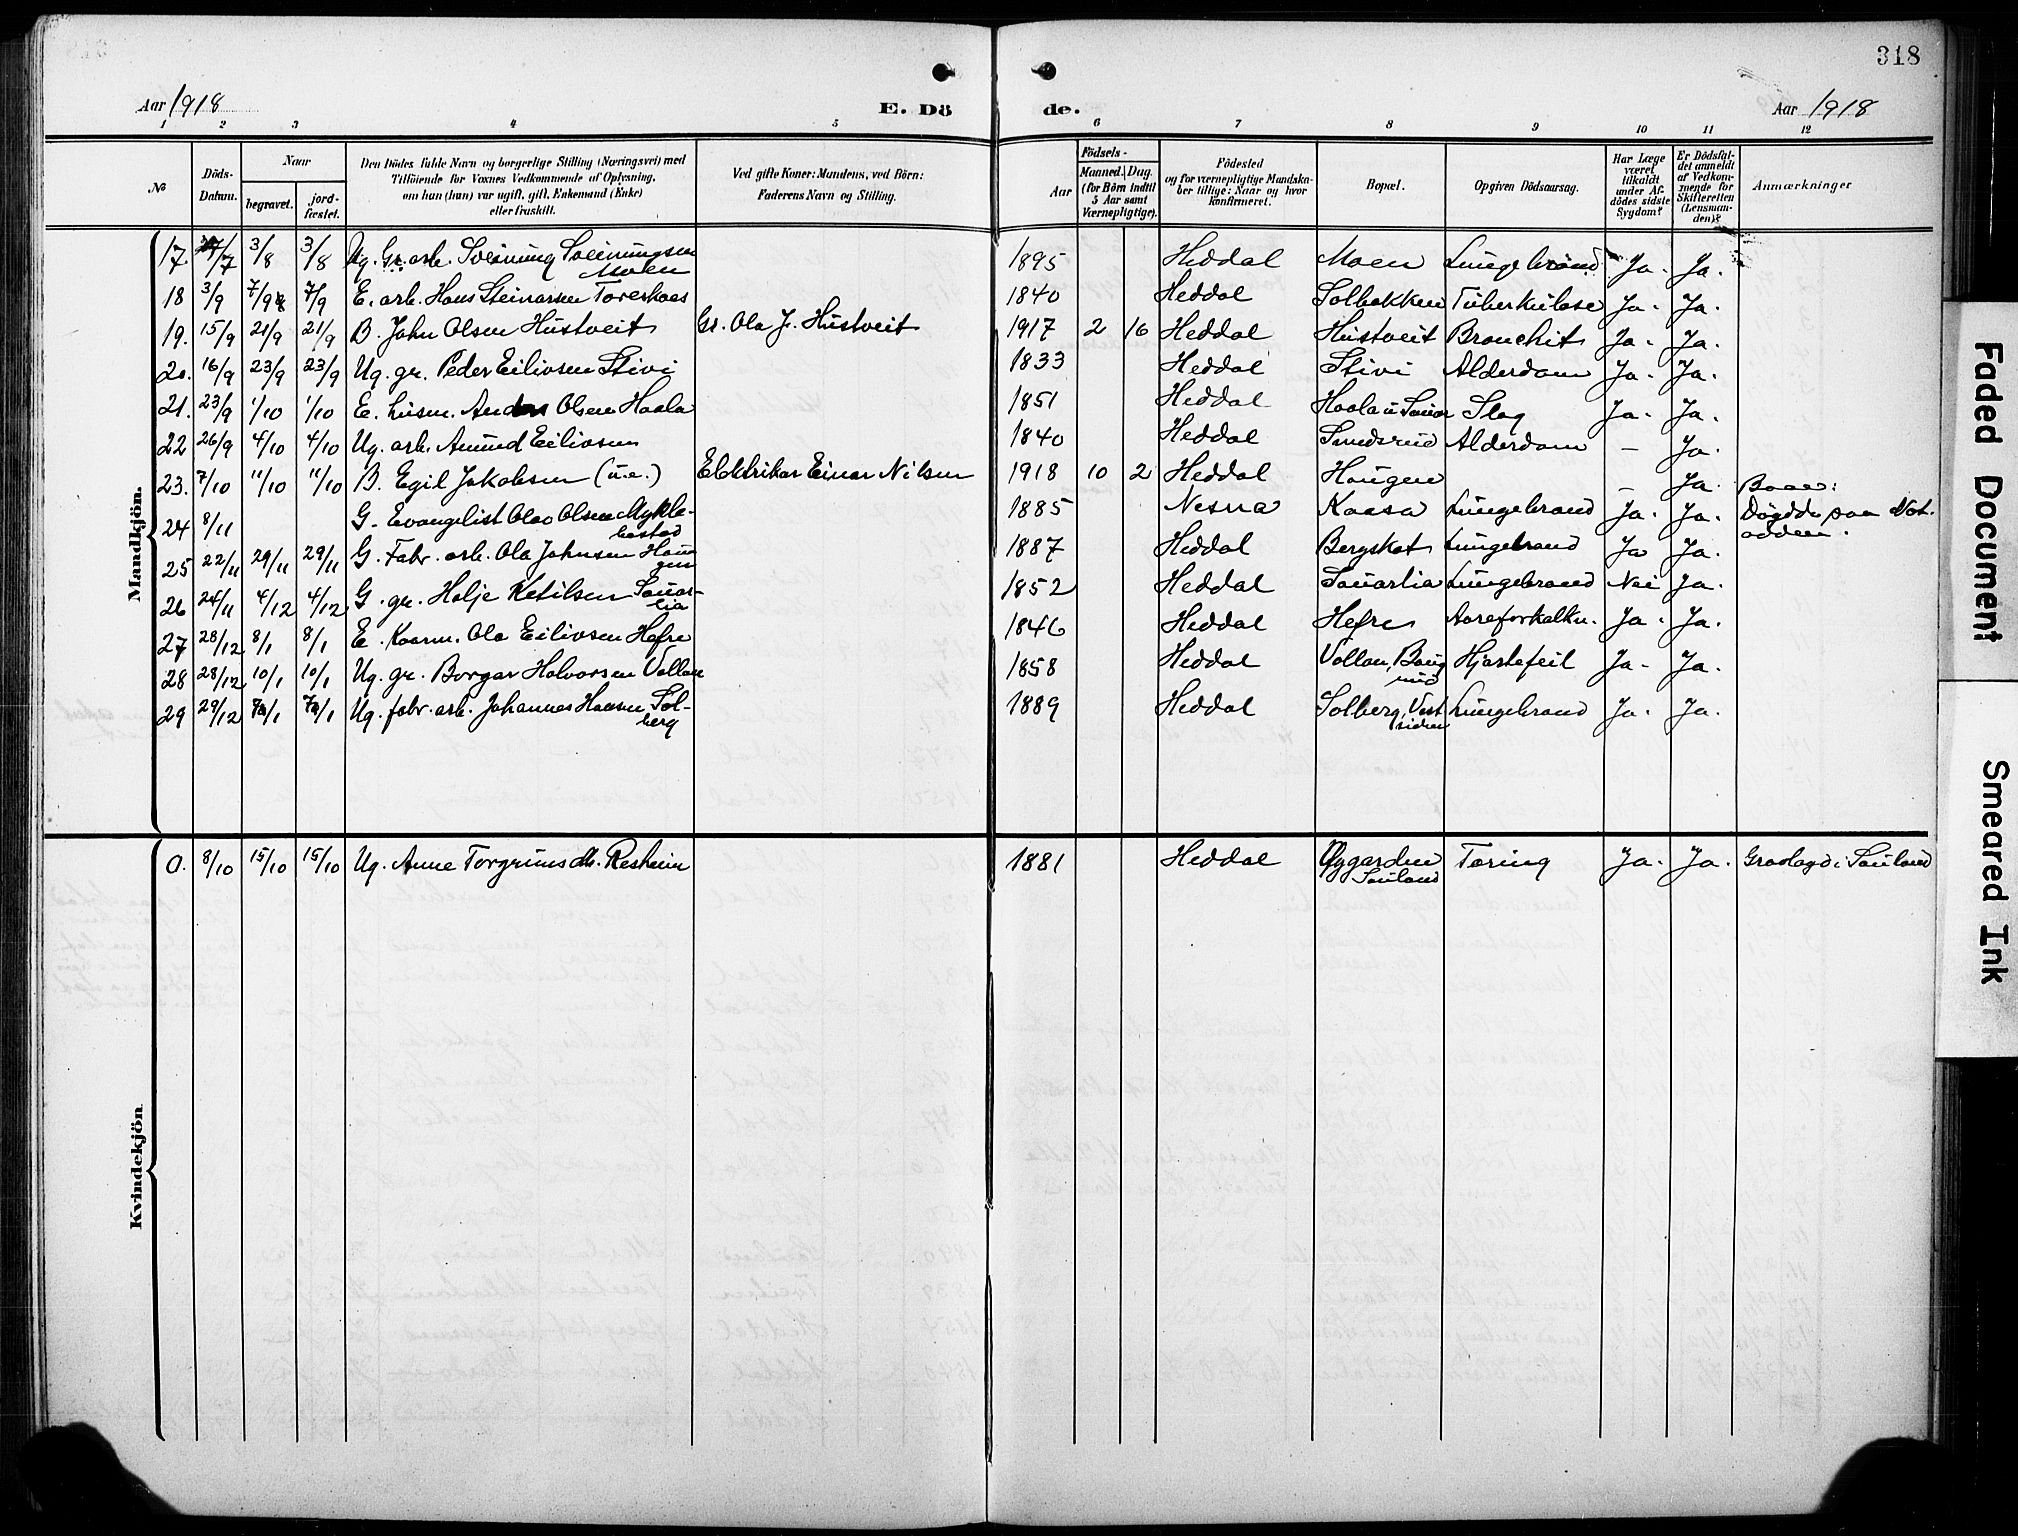 318
Aar 1918
E. Dö de.
Aar 1918
1 2 3 4 5 6 7 8 9 10 11 12
No
Döds-Datum.
Naar
begravet.
jord-fæstet.
Den Dödes fulde Navn og borgerlige Stilling (Næringsvei) med
Tilföiende for Voxnes Vedkommende af Oplysning,
om han (hun) var ugift, gift, Enkemand (Enke)
eller fraskilt.
Ved gifte Koner: Mandens, ved Börn:
Faderens Navn og Stilling.
Födsels-
Aar
Maaned. Dag.
(for Börn indtil
5 Aar samt
Værnepligtige).
Födested
og for værnepligtige Mandska-
ber tillige: Naar og hvor
konfirmeret.
Bopæl.
Opgiven Dödsaarsag.
Har Læge
været
tilkaldt
under Af-
dödes sidste
Sygdom?
Er Dödsfal-
det anmeldt
af Vedkom-
mende for
Skifteretten
(Lensman-
den)?
Anmærkninger
Mandkjön.
17 /7 3/8 3/8 Ug. Gr. arb. Sveinung Sveinungsen Moen 1895 Heddal Moen Lungebrand Ja. Ja.
18 3/9 7/9 7/9 E. arb. Hans Steinarsen Toreskaas 1840 Heddal Solbakken Tuberkulose Ja. Ja.
19. 15/9 21/9 21/9 B. John Olsen Hustveit Gr. Ola J. Hustveit 1917 2 16 Heddal Hustveit Bronchit Ja. Ja.
20. 16/9 23/9 23/9 Ug. gr. Peder Eilivsen Stivi 1833 Heddal Stivi Alderdom Ja. Ja.
21. 23/9 1/10 1/10 E. husm. Anders Olsen Haala 1851 Heddal Haala u. Sauar Slag Ja. Ja.
22 26/9 4/10 4/10 Ug. arb. Amund Eilivsen 1840 Heddal Smedsrud Alderdom – Ja.
23. 7/10 11/10 11/10 B. Egil Jakobsen (u.e.) Elektriker Einar Nilsen 1918 10 2 Heddal Haugen – Ja.
24 8/11 G. Evangelist Olav Olsen Mykle-
bestad 1885 Nesna Kaasa Lungebrand Ja. Ja. Döydde paa Not-
odden.
25 22/11 29/11 29/11 G. Fabr. arb. Ola Johnsen Hau-
gen 1887 Heddal Bergskot Lungebrand Ja Ja.
26 24/11 4/12 4/12 G. gr. Halje Ketilsen Sauar-
lia 1852 Heddal Sauarlia Lungebrand Nei Ja.
27 28/12 8/1 8/1 E. Kaarm. Ola Eilivsen Hefre 1846 Heddal Hefre Aareforkalkn. Ja. Ja.
28 28/12 10/1 10/1 Ug. gr. Borgar Halvorsen Vollan 1858 Heddal Vollan, Baug
rud Hjartefeil Ja. Ja.
29 29/12 /1 /1 Ug. fabr. arb. Johannes Hansen Sol-
berg 1889 Heddal Solberg, Vest
siden Lungebrand Ja. Ja.
Kvindekjön
0. 8/10 15/10 15/10 Ug. Anne Torgrims dtr. Resheim 1881 Heddal Öygarden
Sauland Tæring Ja. Ja. Gravlagd i Sauland
Faded Document
Smeared Ink